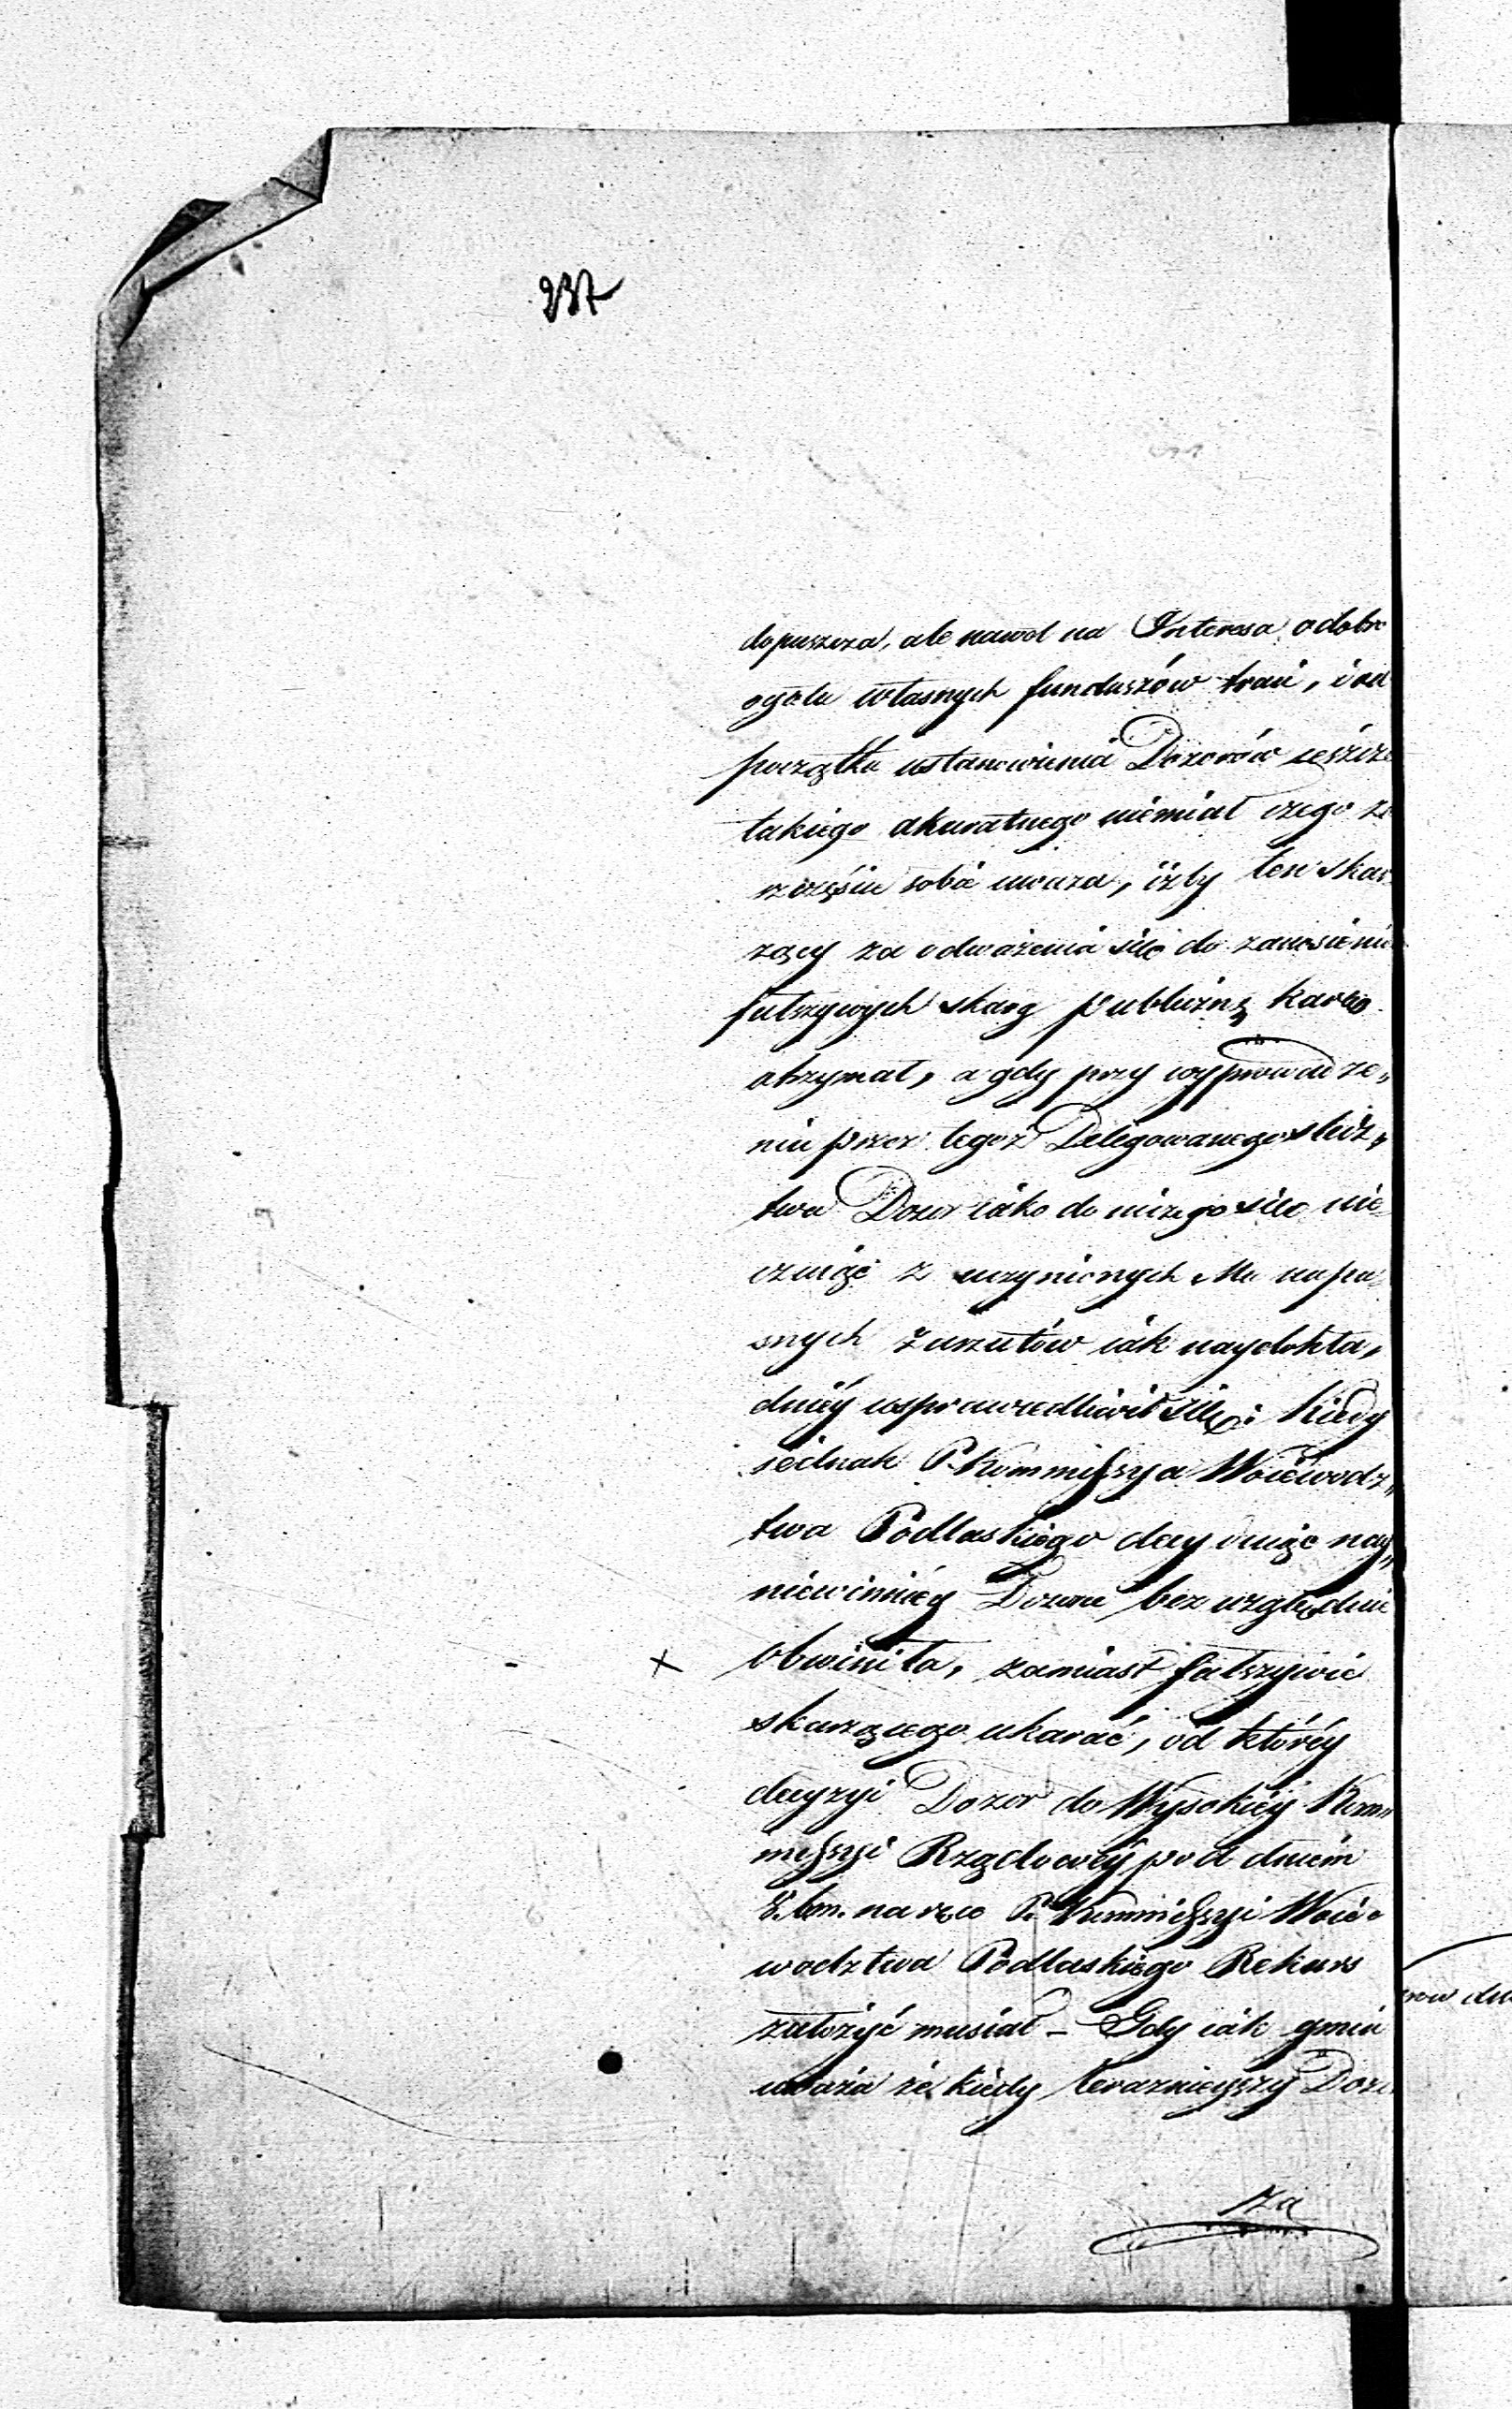 237
dopuszcza, ale nawet na Interesa o dobro
ogółu własnych funduszów traci, i od
początku ustanowienia Dozorów ieszcze
takiego akuratnego niemiał czego za
szczęście sobie uważa, iżby ten skar-
zący za odważenia się do zaniesienia
fałszywych skarg Publiczną karę
otrzymał, a gdy przy wyprowadze„
niu przez tegoż Delegowanego śledz„
twa Dozor iako do niczego się nie
czuiąc z uczynionych Mu napa-
snych zarzutów iak naydokła„
dniéy usprawiedliwił się: Kiedy
iednak P. Kommissya Woiewodz„
twa Podlaskiego decyduiąc nay„
niewinniéy Dozoru bezwzględnie
x obwiniła, zamiast fałszywie
skarzącego ukarać, od któréy
decyzyi Dozor do Wysokiéy Kom„
missyi Rządowéy pod dniem
8. bm. na ręce P. Kommissyi Woie-
wodztwa Podlaskiego Rekurs
założyć musiał – Gdy iak gmin
uważa że kiedy teraznieyszy Dozo